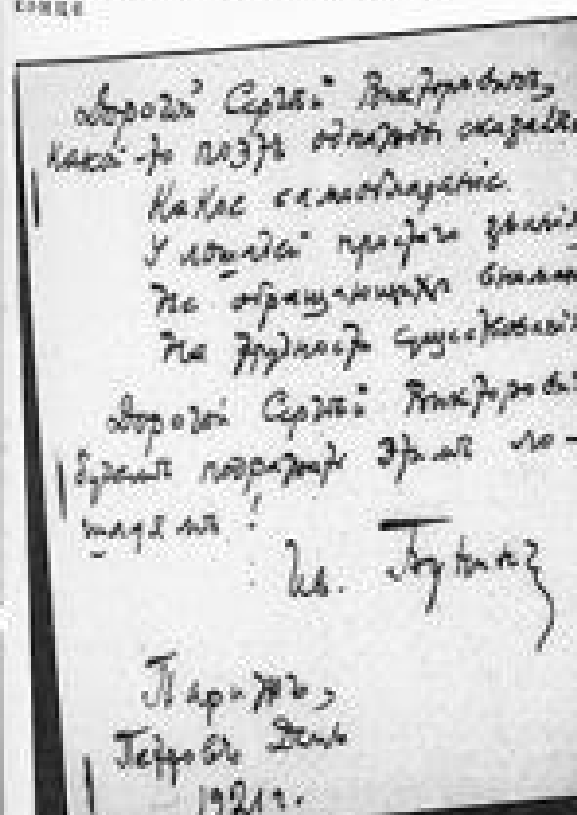 конце
Дорогой Сергѣй Викторовичъ,
Какой-то поэтъ однажды сказалъ
Какое самообладаніе
У лошадей простого званія
Не обращающихъ вниман
На трудности существованія
Дорогой Сергѣй Викторович
Будемъ подражать этимъ ло-
шадямъ!
Ив. Бунинъ
Парижъ,
Петровъ День
1921 г.